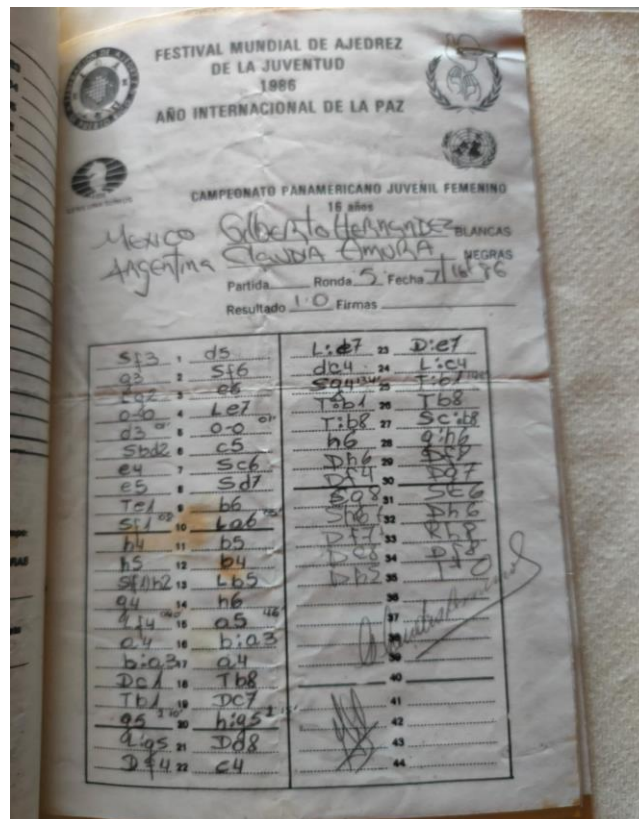 FESTIVAL MUNDIAL DE AJEDREZ
DE LA JUVENTUD
1986
AÑO INTERNACIONAL DE LA PAZ
CAMPEONATO PANAMERICANO JUVENIL FEMENINO
16 años
Mexico Gilberto Hernandez BLANCAS
Argentina Claudia Amura NEGRAS
Partida Ronda 5 Fecha
Resultado 1-0 Firmas
Sf3 1 d5
g3 2 Sf6
3 e6
0-0 4 Le7
d3 5 0-0
Sbd2 6 c5
e4 7 Sc6
e5 8 Sd7
Te1 9 b6
Sf1 10 La6
h4 11 b5
h5 12 b4
Sf1h2 13 Lb5
g4 14 h6
15 a5
a4 16 b:a3
b:a3 17 a4
Dc1 18 Tb8
Tb1 19 Dc7
g5 20 h:g5
21 Dd8
Df4 22 c4
L:e7 23 D:e7
dc4 24 L:c4
Sg4 25 T:b1
T:b1 26 Tb8
T:b8 27 Sc:b8
h6 28 g:h6
Dh6 29
Df4 30 Dg7
31 Sc6
32 Dh6
Df7 33 Rh8
34 Df8
35 1-0
36
37
38
39
40
41
42
43
44